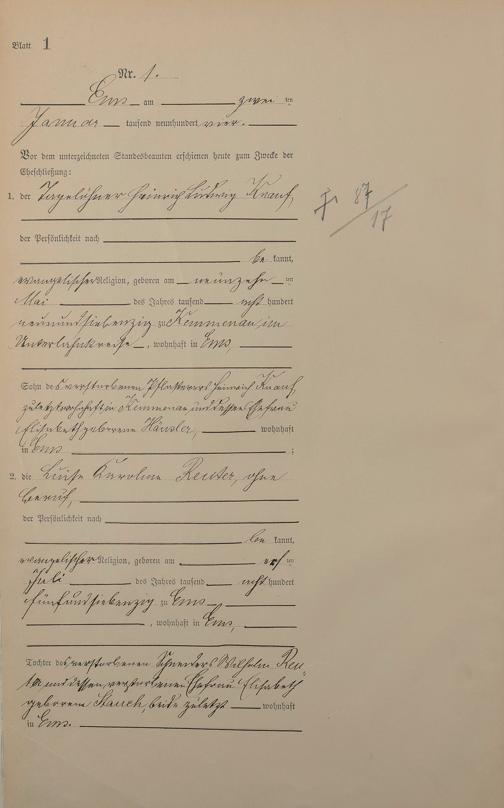 Blatt 1
Nr. 1.
Ems am zwei ten
Januar tausend neunhundert vier.
Vor dem unterzeichneten Standesbeamten erschienen heute zum Zwecke der
Eheschließung:
1. der Tagelöhner Heinrich Ludwig Knauf,
der Persönlichkeit nach
be kannt,
evangelischer Religion, geboren am neunzehn ten
Mai des Jahres tausend acht hundert
neunundsiebenzig zu Kemmenau im
Unterlahnkreise, wohnhaft in Ems,
Sohn des verstorbenen Pflasterers Heinrich Knauf,
zuletzt wohnhaft in Kemmenau und dessen Ehefrau
Elisabeth geborene Häusler, wohnhaft
in Ems ;
2. die Luise Karoline Reuter, ohne
Beruf,
der Persönlichkeit nach
be kannt,
evangelischer Religion, geboren am ten
Juli des Jahres tausend acht hundert
fünfundsiebenzig zu Ems
, wohnhaft in Ems,
Tochter des verstorbenen Schneiders Wilhelm Reu-
ter und dessen verstorbenen Ehefrau Elisabeth
geborene Stauch, beide zuletzt wohnhaft
in Ems.
87
17